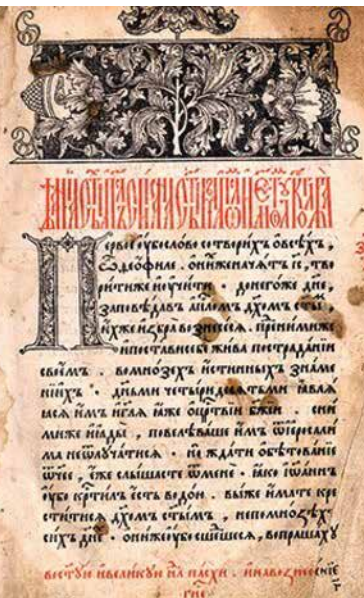 Первое ᲂу҆бо слово сотвори́хъ ѻ҆ всѣ́хъ ,
ѽ део́филе . ѻ҆ ни́хже начѧ́тъ і҆с , тво
ри́ти же и҆ ᲂу҆чи́ти . до него́же дн҃е ,
заповѣ́давъ а҆пⷭ҇ломъ дх҃омъ ст҃ы́м ,
и҆́хже и҆збра̀ вознесе́сѧ . пред̾ ни́миже
и҆ поста́ви себѐ жи́ва по страда́нїи
свое́мъ . во мно́зѣхъ и҆́стинныхъ зна́ме
нїихъ . дньмѝ четы́ридесѧтьми ꙗ҆влѧ́
ѧсѧ и҆̀мъ и҆ гл҃ѧ ꙗ҆́же ѻ҆ црⷭ҇твїи бж҃їи . сни́
миже и҆ ꙗ҆ды̀ , повелѣ́ваше и҆̀мъ ѿ і҆еросали́
ма не ѿлꙋча́тисѧ . но жда́ти ѻ҆бѣтова́нїе
ѿч҃ее , е҆́же слы́шасте ѿ менѐ . ꙗ҆́ко і҆ѡа́ннъ
ᲂу҆́бо крⷭ҇ти́лъ є҆́сть водо́ю . вы́же и҆́мате кре
сти́тисѧ дх҃омъ ст҃ы́мъ , не по мно́зѣхъ
си́хъ дн҃е . ѻ҆ни́же ᲂу҆̀бо сше́дшесѧ , вопраша́хꙋ